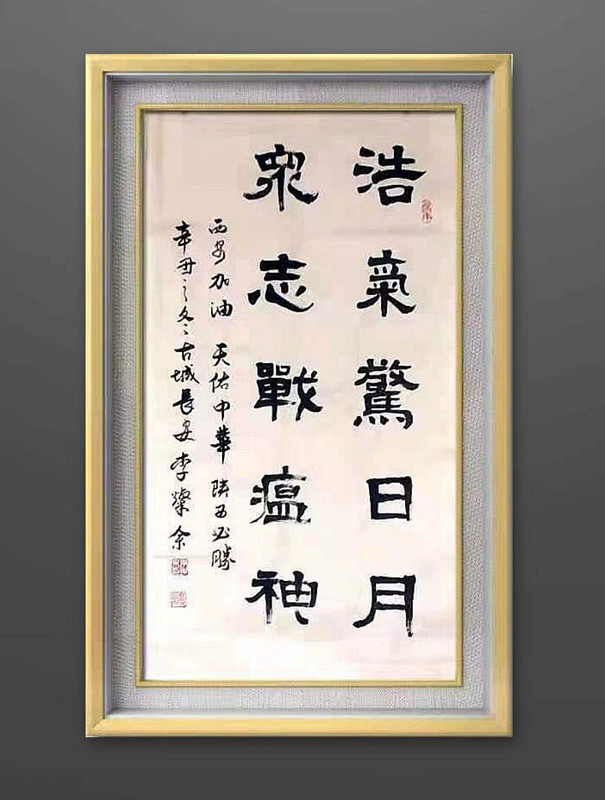 浩氣驚日月
衆志戰瘟神
西安加油 天佑中華 陕西必勝
辛丑之冬古城長安李燦余